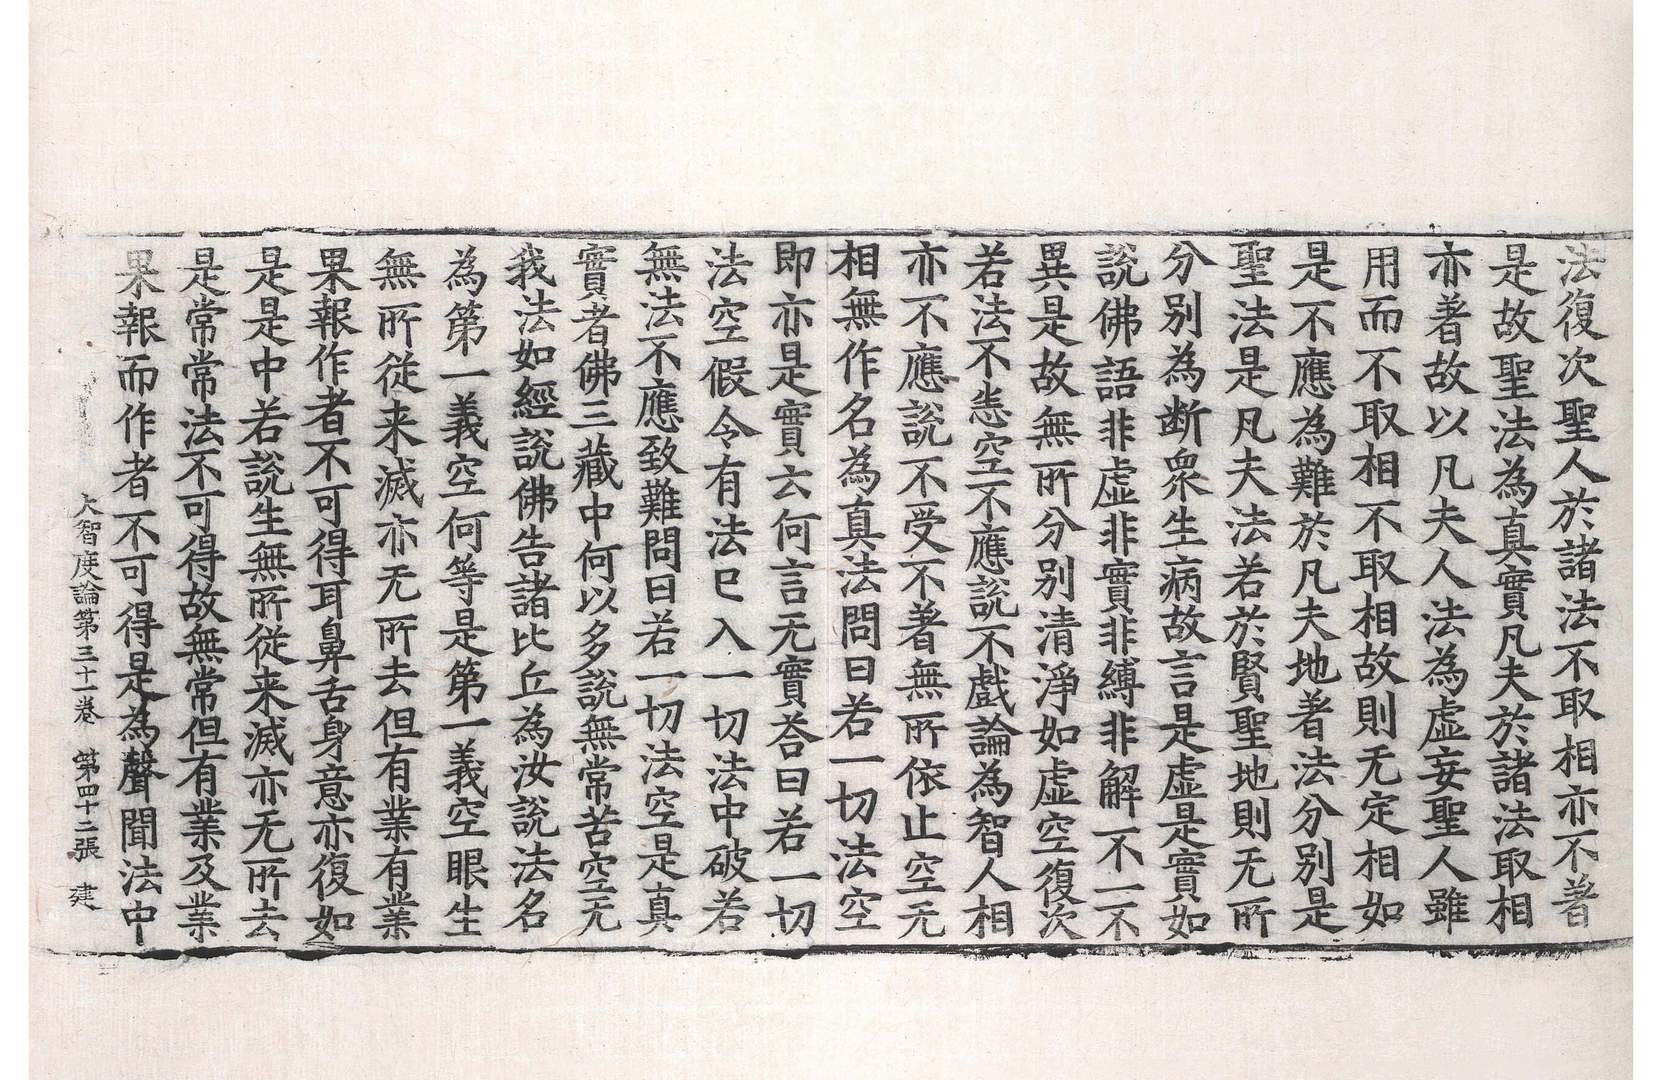 法復次聖人於諸法不取相亦不著
是故聖法為真實凡夫於諸法取相
亦著故以凡夫人法為虛妄聖人雖
用而不取相不取相故則无定相如
是不應為難於凡夫地著法分別是
聖法是凡夫法若於賢聖地則无所
分別為断衆生病故言是虛是實如
說佛語非虛非實非縛非解不一不
異是故無所分別清淨如虛空復次
若法不悉空不應說不戲論為智人相
亦不應說不受不著無所依止空无
相無作名為真法問曰若一切法空
即亦是實云何言无實荅曰若一切
法空假令有法已入一切法中破若
無法不應致難問曰若一切法空是真
實者佛三藏中何以多說無常苦空无
我法如經說佛告諸比丘為汝說法名
為第一義空何等是第一義空眼生
無所從来滅亦无所去但有業有業
果報作者不可得耳鼻舌身意亦復如
是是中若說生無所從来滅亦无所去
是常常法不可得故無常但有業及業
果報而作者不可得是為聲聞法中
大智度論第三十一卷 第四十二張 建